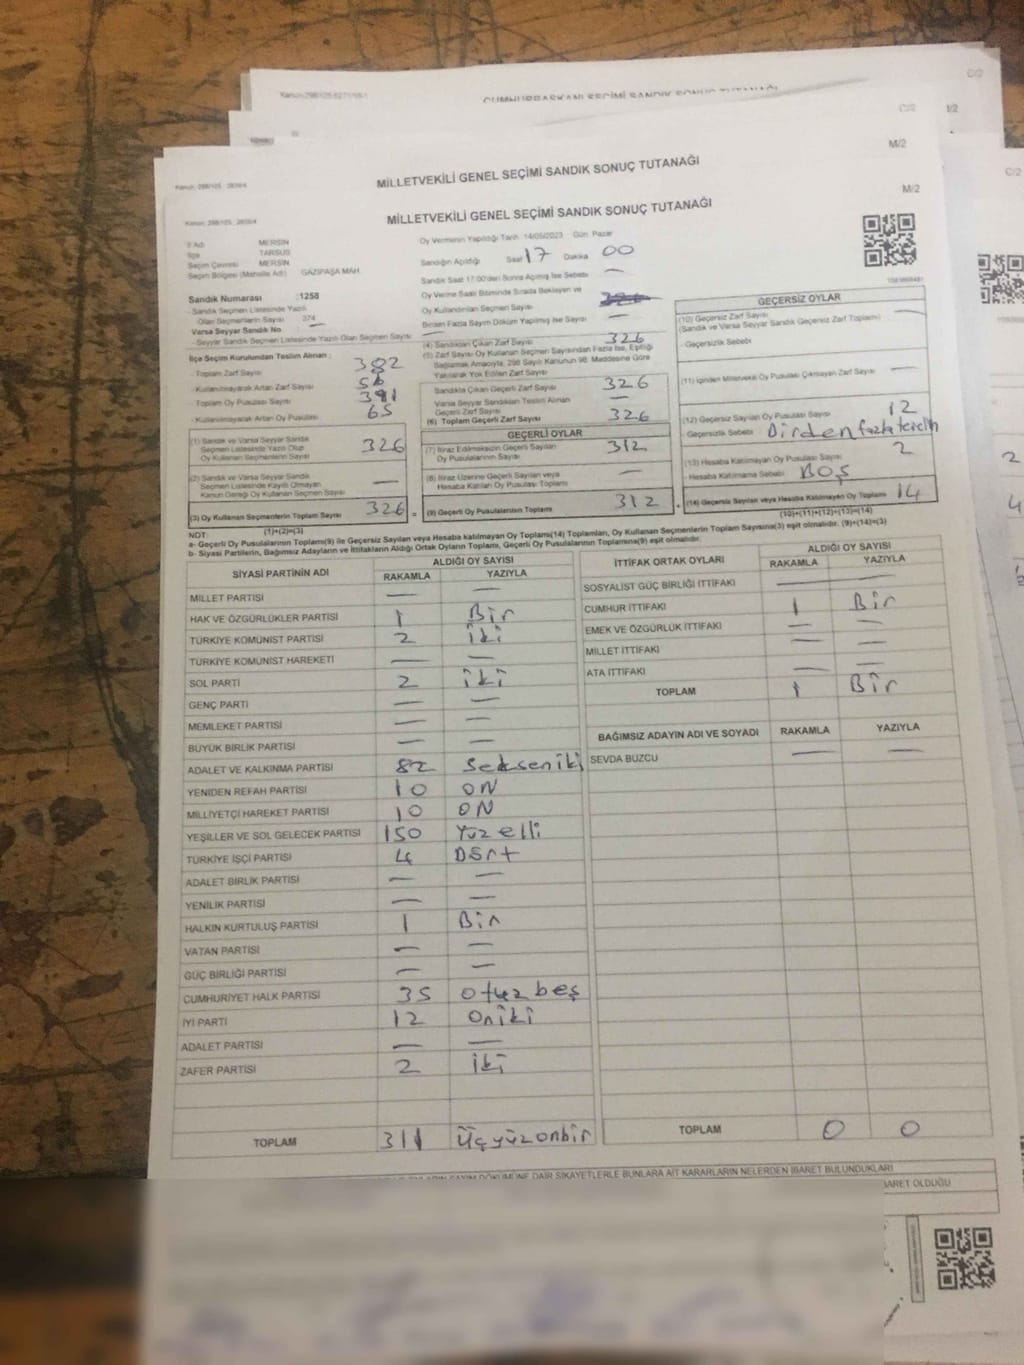 CUMHURBAŞKANI SEÇİMİ SANDIK SONUÇ TUTANAĞI
C/2
M/2
MİLLETVEKİLİ GENEL SEÇİMİ SANDIK SONUÇ TUTANAĞI
M/2
MİLLETVEKİLİ GENEL SEÇİMİ SANDIK SONUÇ TUTANAĞI
İl Adı MERSİN
İlçe TARSUS
Seçim Çevresi MERSİN
Seçim Bölgesi (Mahalle Adı) GAZİPAŞA MAH.
Sandık Numarası :1258
Sandık Seçmen Listesinde Yazılı
Olan Seçmenlerin Sayısı 374
Varsa Seyyar Sandık No
Seyyar Sandık Seçmen Listesinde Yazılı Olan Seçmen Sayısı —
İlçe Seçim Kurulundan Teslim Alınan :
- Toplam Zarf Sayısı 382
- Kullanılmayarak Artan Zarf Sayısı 56
- Toplam Oy Pusulası Sayısı 391
- Kullanılmayarak Artan Oy Pusulası 65
(1) Sandık ve Varsa Seyyar Sandık
Seçmen Listesinde Yazılı Olup
Oy Kullanan Seçmenlerin Sayısı 326
(2) Sandık ve Varsa Seyyar Sandık
Seçmen Listesinde Kayıtlı Olmayan
Kanun Gereği Oy Kullanan Seçmen Sayısı —
(3) Oy Kullanan Seçmenlerin Toplam Sayısı 326
(1)+(2)=(3)
Oy Vermenin Yapıldığı Tarih 14/05/2023 Gün Pazar
Sandığın Açıldığı Saat 17 Dakika 00
Sandık Saat 17:00'den Sonra Açılmış İse Sebebi —
Oy Verme Saati Bitiminde Sırada Bekleyen ve
Oy Kullandırılan Seçmen Sayısı
Birden Fazla Sayım Döküm Yapılmış İse Sayısı —
(4) Sandıktan Çıkan Zarf Sayısı 326
(5) Zarf Sayısı Oy Kullanan Seçmen Sayısından Fazla İse, Eşitliği
Sağlamak Amacıyla, 298 Sayılı Kanunun 98. Maddesine Göre
Yakılarak Yok Edilen Zarf Sayısı
Sandıkta Çıkan Geçerli Zarf Sayısı 326
Varsa Seyyar Sandıktan Teslim Alınan
Geçerli Zarf Sayısı —
(6) Toplam Geçerli Zarf Sayısı 326
GEÇERLİ OYLAR
(7) İtiraz Edilmeksizin Geçerli Sayılan
Oy Pusulalarının Sayısı 312
(8) İtiraz Üzerine Geçerli Sayılan veya
Hesaba Katılan Oy Pusulası Toplamı —
(9) Geçerli Oy Pusulalarının Toplamı 312
GEÇERSİZ OYLAR
(10) Geçersiz Zarf Sayısı —
(Sandık ve Varsa Seyyar Sandık Geçersiz Zarf Toplamı)
- Geçersizlik Sebebi
(11) İçinden Milletvekili Oy Pusulası Çıkmayan Zarf Sayısı —
(12) Geçersiz Sayılan Oy Pusulası Sayısı 12
- Geçersizlik Sebebi Birden fazla tercih
(13) Hesaba Katılmayan Oy Pusulası Sayısı 2
- Hesaba Katılmama Sebebi BOŞ
(14) Geçersiz Sayılan veya Hesaba Katılmayan Oy Toplamı 14
(10)+(11)+(12)+(13)=(14)
NOT:
a- Geçerli Oy Pusulalarının Toplamı(9) ile Geçersiz Sayılan veya Hesaba katılmayan Oy Toplamı(14) Toplamları, Oy Kullanan Seçmenlerin Toplam Sayısına(3) eşit olmalıdır. (9)+(14)=(3)
b- Siyasi Partilerin, Bağımsız Adayların ve İttifakların Aldığı Ortak Oyların Toplamı, Geçerli Oy Pusulalarının Toplamına(9) eşit olmalıdır.
SİYASİ PARTİNİN ADI ALDIĞI OY SAYISI
RAKAMLA YAZIYLA
MİLLET PARTİSİ — —
HAK VE ÖZGÜRLÜKLER PARTİSİ 1 Bir
TÜRKİYE KOMÜNİST PARTİSİ 2 iki
TÜRKİYE KOMÜNİST HAREKETİ — —
SOL PARTİ 2 iki
GENÇ PARTİ — —
MEMLEKET PARTİSİ — —
BÜYÜK BİRLİK PARTİSİ — —
ADALET VE KALKINMA PARTİSİ 82 Sekseniki
YENİDEN REFAH PARTİSİ 10 ON
MİLLİYETÇİ HAREKET PARTİSİ 10 ON
YEŞİLLER VE SOL GELECEK PARTİSİ 150 Yüz elli
TÜRKİYE İŞÇİ PARTİSİ 4 Dört
ADALET BİRLİK PARTİSİ — —
YENİLİK PARTİSİ — —
HALKIN KURTULUŞ PARTİSİ 1 Bir
VATAN PARTİSİ — —
GÜÇ BİRLİĞİ PARTİSİ — —
CUMHURİYET HALK PARTİSİ 35 Otuz beş
İYİ PARTİ 12 Oniki
ADALET PARTİSİ — —
ZAFER PARTİSİ 2 iki
TOPLAM 311 Üçyüzonbir
İTTİFAK ORTAK OYLARI ALDIĞI OY SAYISI
RAKAMLA YAZIYLA
SOSYALİST GÜÇ BİRLİĞİ İTTİFAKI — —
CUMHUR İTTİFAKI 1 Bir
EMEK VE ÖZGÜRLÜK İTTİFAKI — —
MİLLET İTTİFAKI — —
ATA İTTİFAKI — —
TOPLAM 1 Bir
BAĞIMSIZ ADAYIN ADI VE SOYADI RAKAMLA YAZIYLA
SEVDA BUZCU — —
TOPLAM 0 0
SAYIM DÖKÜMÜNE DAİR ŞİKAYETLERLE BUNLARA AİT KARARLARIN NELERDEN İBARET BULUNDUKLARI